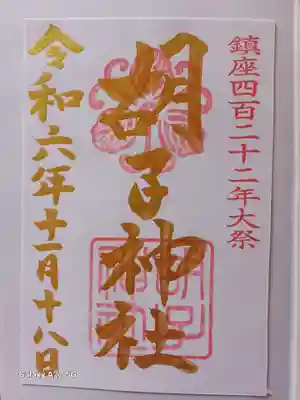 鎮座四百二十二年大祭
胡子神社
令和六年十一月十八日